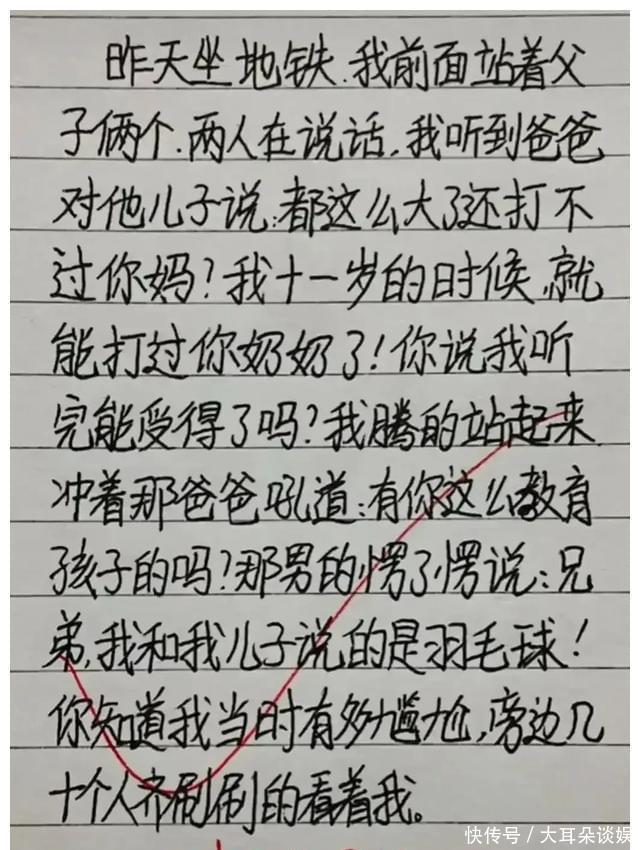 昨天坐地铁.我前面站着父
子俩个.两人在说话.我听到爸爸
对他儿子说:都这么大了还打不
过你妈?我十一岁的时候,就
能打过你奶奶了!你说我听
完能受得了吗?我腾的站起来
冲着那爸爸吼道:有你这么教育
孩子的吗?那男的愣了愣说:兄
弟,我和我儿子说的是羽毛球!
你知道我当时有多尴尬,旁边几
十个人齐刷刷的看着我。
快传号/大耳朵谈娱